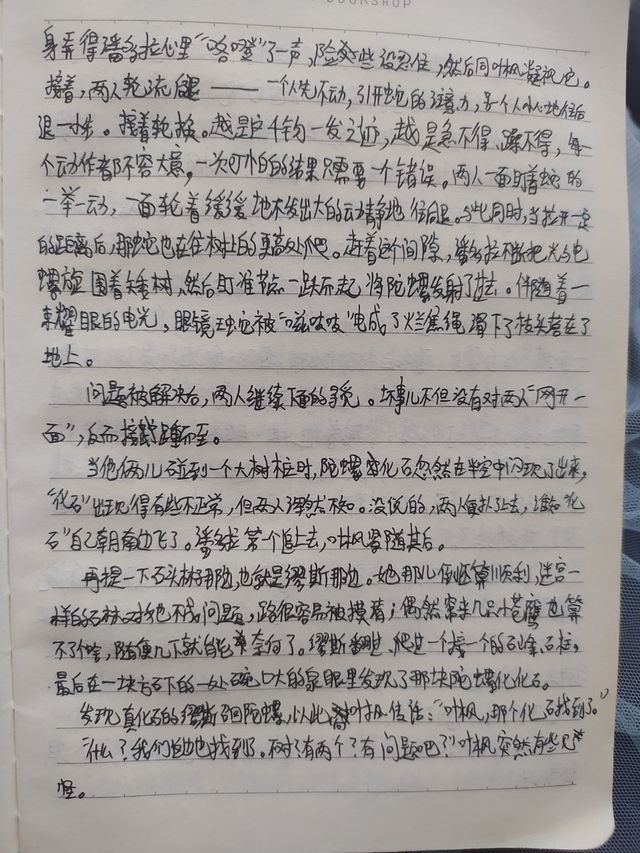 BOOKSHOP
身弄得潘多拉心里“咯噔”了一声,险些没忍住,然后同叶枫凝视它。
接着,两人轮流后退——一个人先不动,引开蛇的注意力,另个人小心地往后
退一步。接着轮换。越是千钧一发之际,越是急不得、躁不得,每
个动作都不容大意,一次可怕的结果只需要一个错误。两人一面盯着蛇的
一举一动,一面轮着缓缓地不发出大的动静地往后退。与此同时,当拉开一定
的距离后,那蛇也在往树上的更高处爬。趁着这个间隙,潘多拉不断把光与电
螺旋围着矮树,然后盯准节点一跃而起将陀螺发射了过去。伴随着一
束耀眼的电光,眼镜王蛇被“嗞吱吱”电成了烂焦绳滑下了枝头落在了
地上。
问题被解决后,两人继续下面的寻觅。坏事儿不但没有对两人“网开一
面”,反而接踵而至。
当他俩儿碰到一个大树桩时,陀螺化石忽然在半空中闪现了出来,
“化石”出现得有些不正常,但两人浑然不知。没说的,两人便扑上去,谁知“化
石”自己朝南边飞了。潘多拉第一个追上去,叶枫紧随其后。
再提一下石头林子那边,也就是缪斯那边。她那儿倒还算顺利,迷宫一
样的石林对她不成问题,路很容易被摸着;偶然窜来几只小苍鹰也算
不了啥,随便几下就能奈何了。缪斯翻过、爬过一个接一个的石峰、石柱,
最后在一块方石下的一处碗口大的泉眼里发现了那块陀螺化石。
发现真化石的缪斯召回陀螺,以此和叶枫传话:“叶枫,那个化石找到了。”
“什么?我们这边也找到了。树子有两个?有问题吧?”叶枫突然有些见
怪。